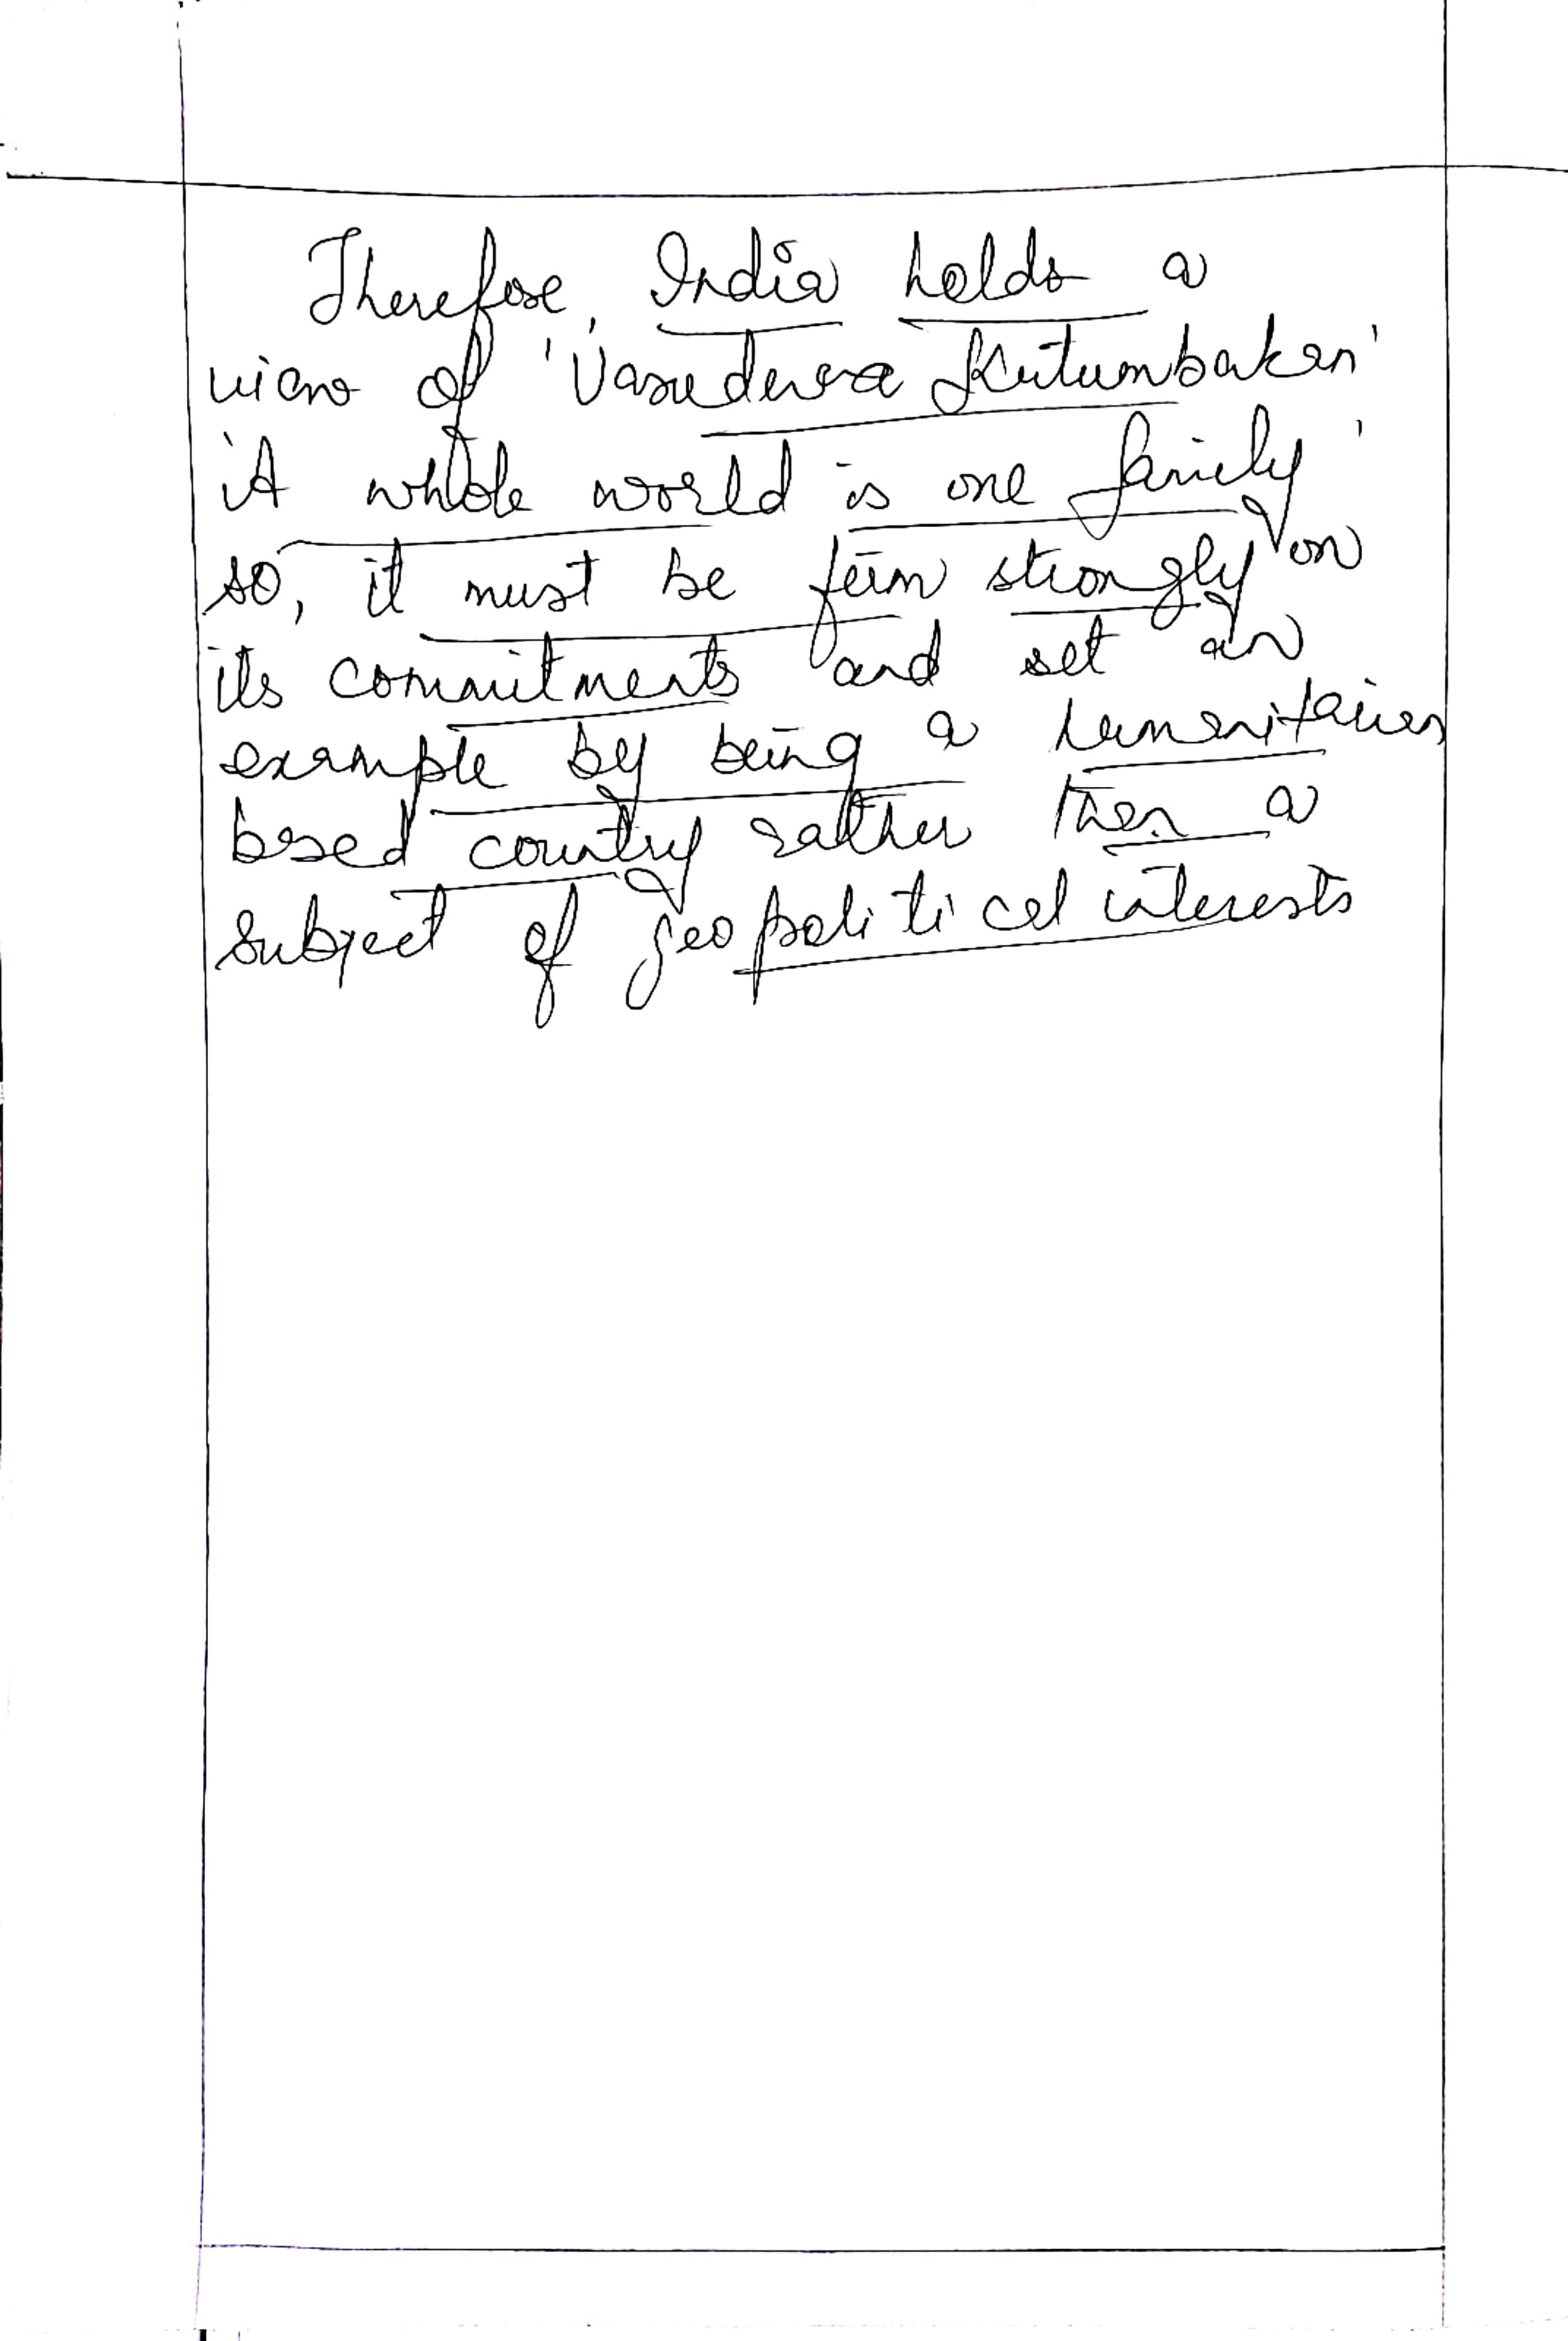 Therefore, India holds a
view of 'Vasudeva Kutumbakan'
'A whole world is one family'
so, it must be firm strongly on
its commitments and set an
example by being a humanitarian
based country rather than a
subject of geopolitical interests